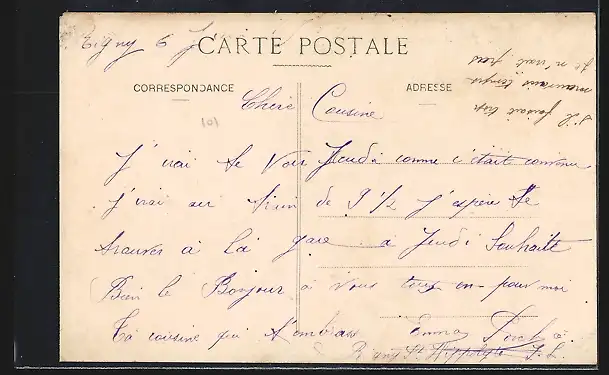 Rigny 6 J
CARTE POSTALE
CORRESPONDANCE ADRESSE
s'il faisait trop
mauvais temps
je n'irait pas
Chère Cousine
J'irai te voir Jeudi comme c'était convenu
j'irai au train de 9 1/2 j'espère te
trouver à la gare à Jeudi Souhaite
Bien le Bonjour à vous tous en pour moi
Ta cousine qui t'embrasse Emma
Rigny St Hippolyte